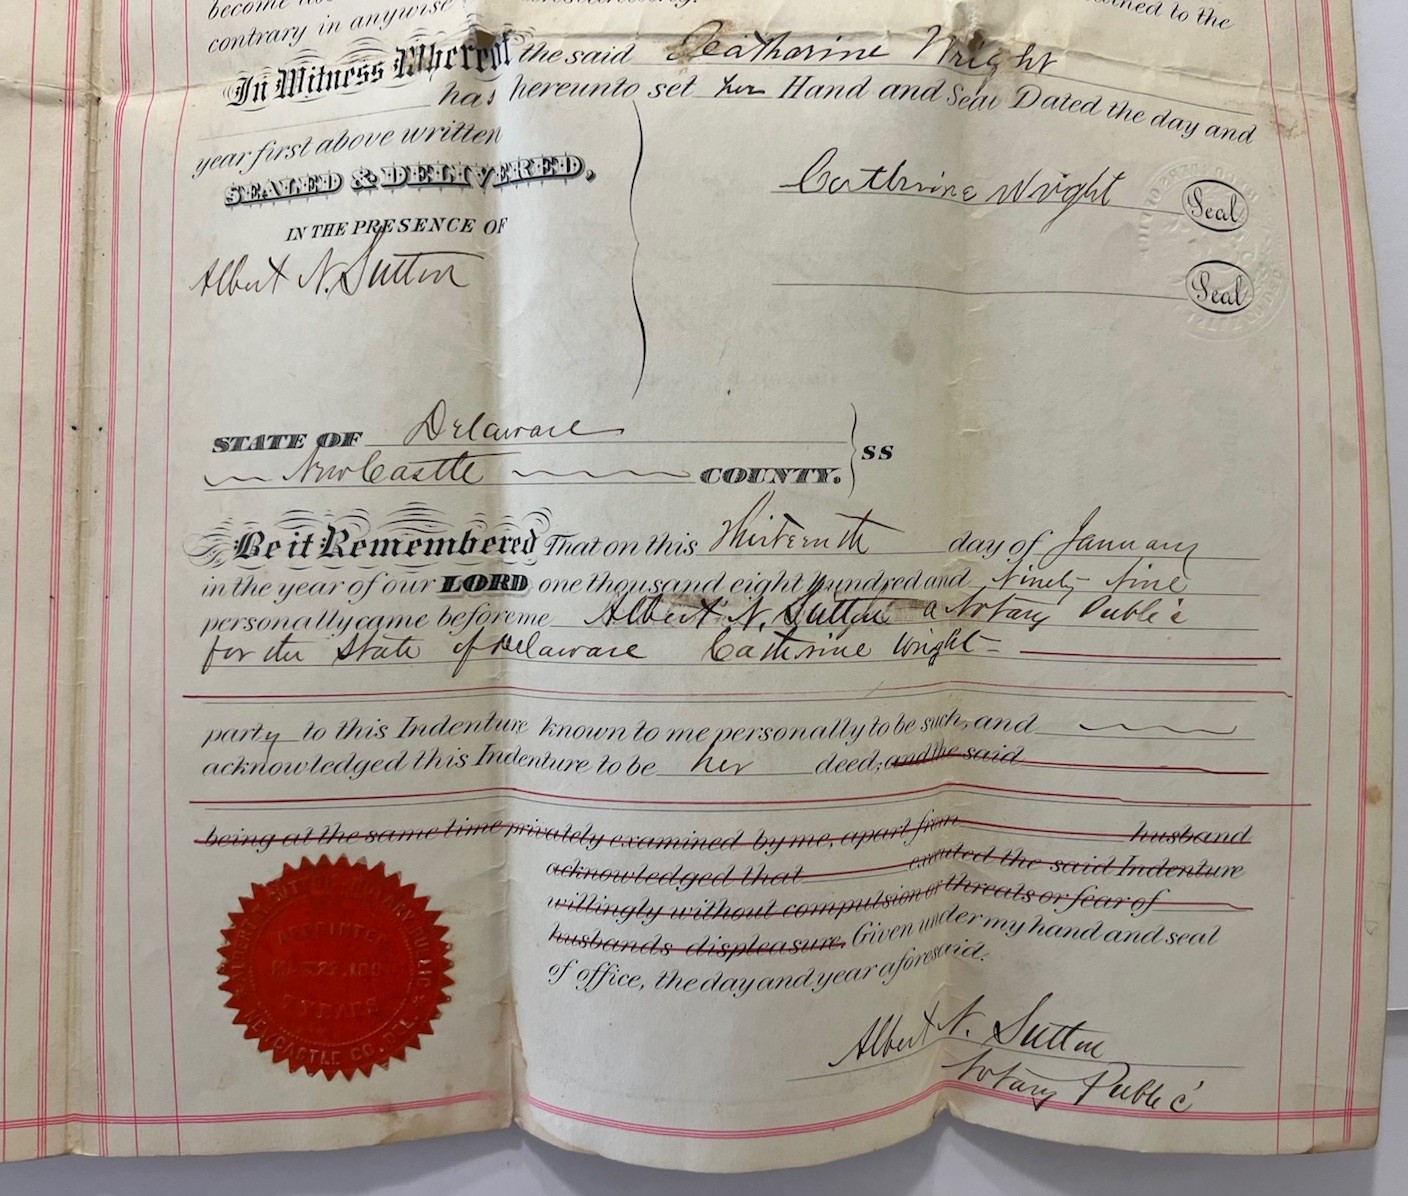 become
contrary in anywise
to the
In Witness Whereof the said Catharine Wright
has hereunto set her Hand and Seal Dated the day and
year first above written
SEALED & DELIVERED,
IN THE PRESENCE OF
Catherine Wright Seal
Albert N. Sutton
Seal
STATE OF Delaware
New Castle COUNTY. SS
Be it Remembered That on this Thirteenth day of January
in the year of our LORD one thousand eight hundred and Ninety Nine
personally came before me Albert N. Sutton a Notary Public
for the State of Delaware Catherine Wright
party to this Indenture known to me personally to be such, and
acknowledged this Indenture to be her deed; and the said
being at the same time privately examined by me, apart from husband
acknowledged that executed the said Indenture
willingly without compulsion or threats or fear of
husbands displeasure. Given under my hand and seal
of office, the day and year aforesaid.
NOTARY PUBLIC
APPOINTED
7 YEARS
NEWCASTLE CO. DEL.
Albert N. Sutton
Notary Public